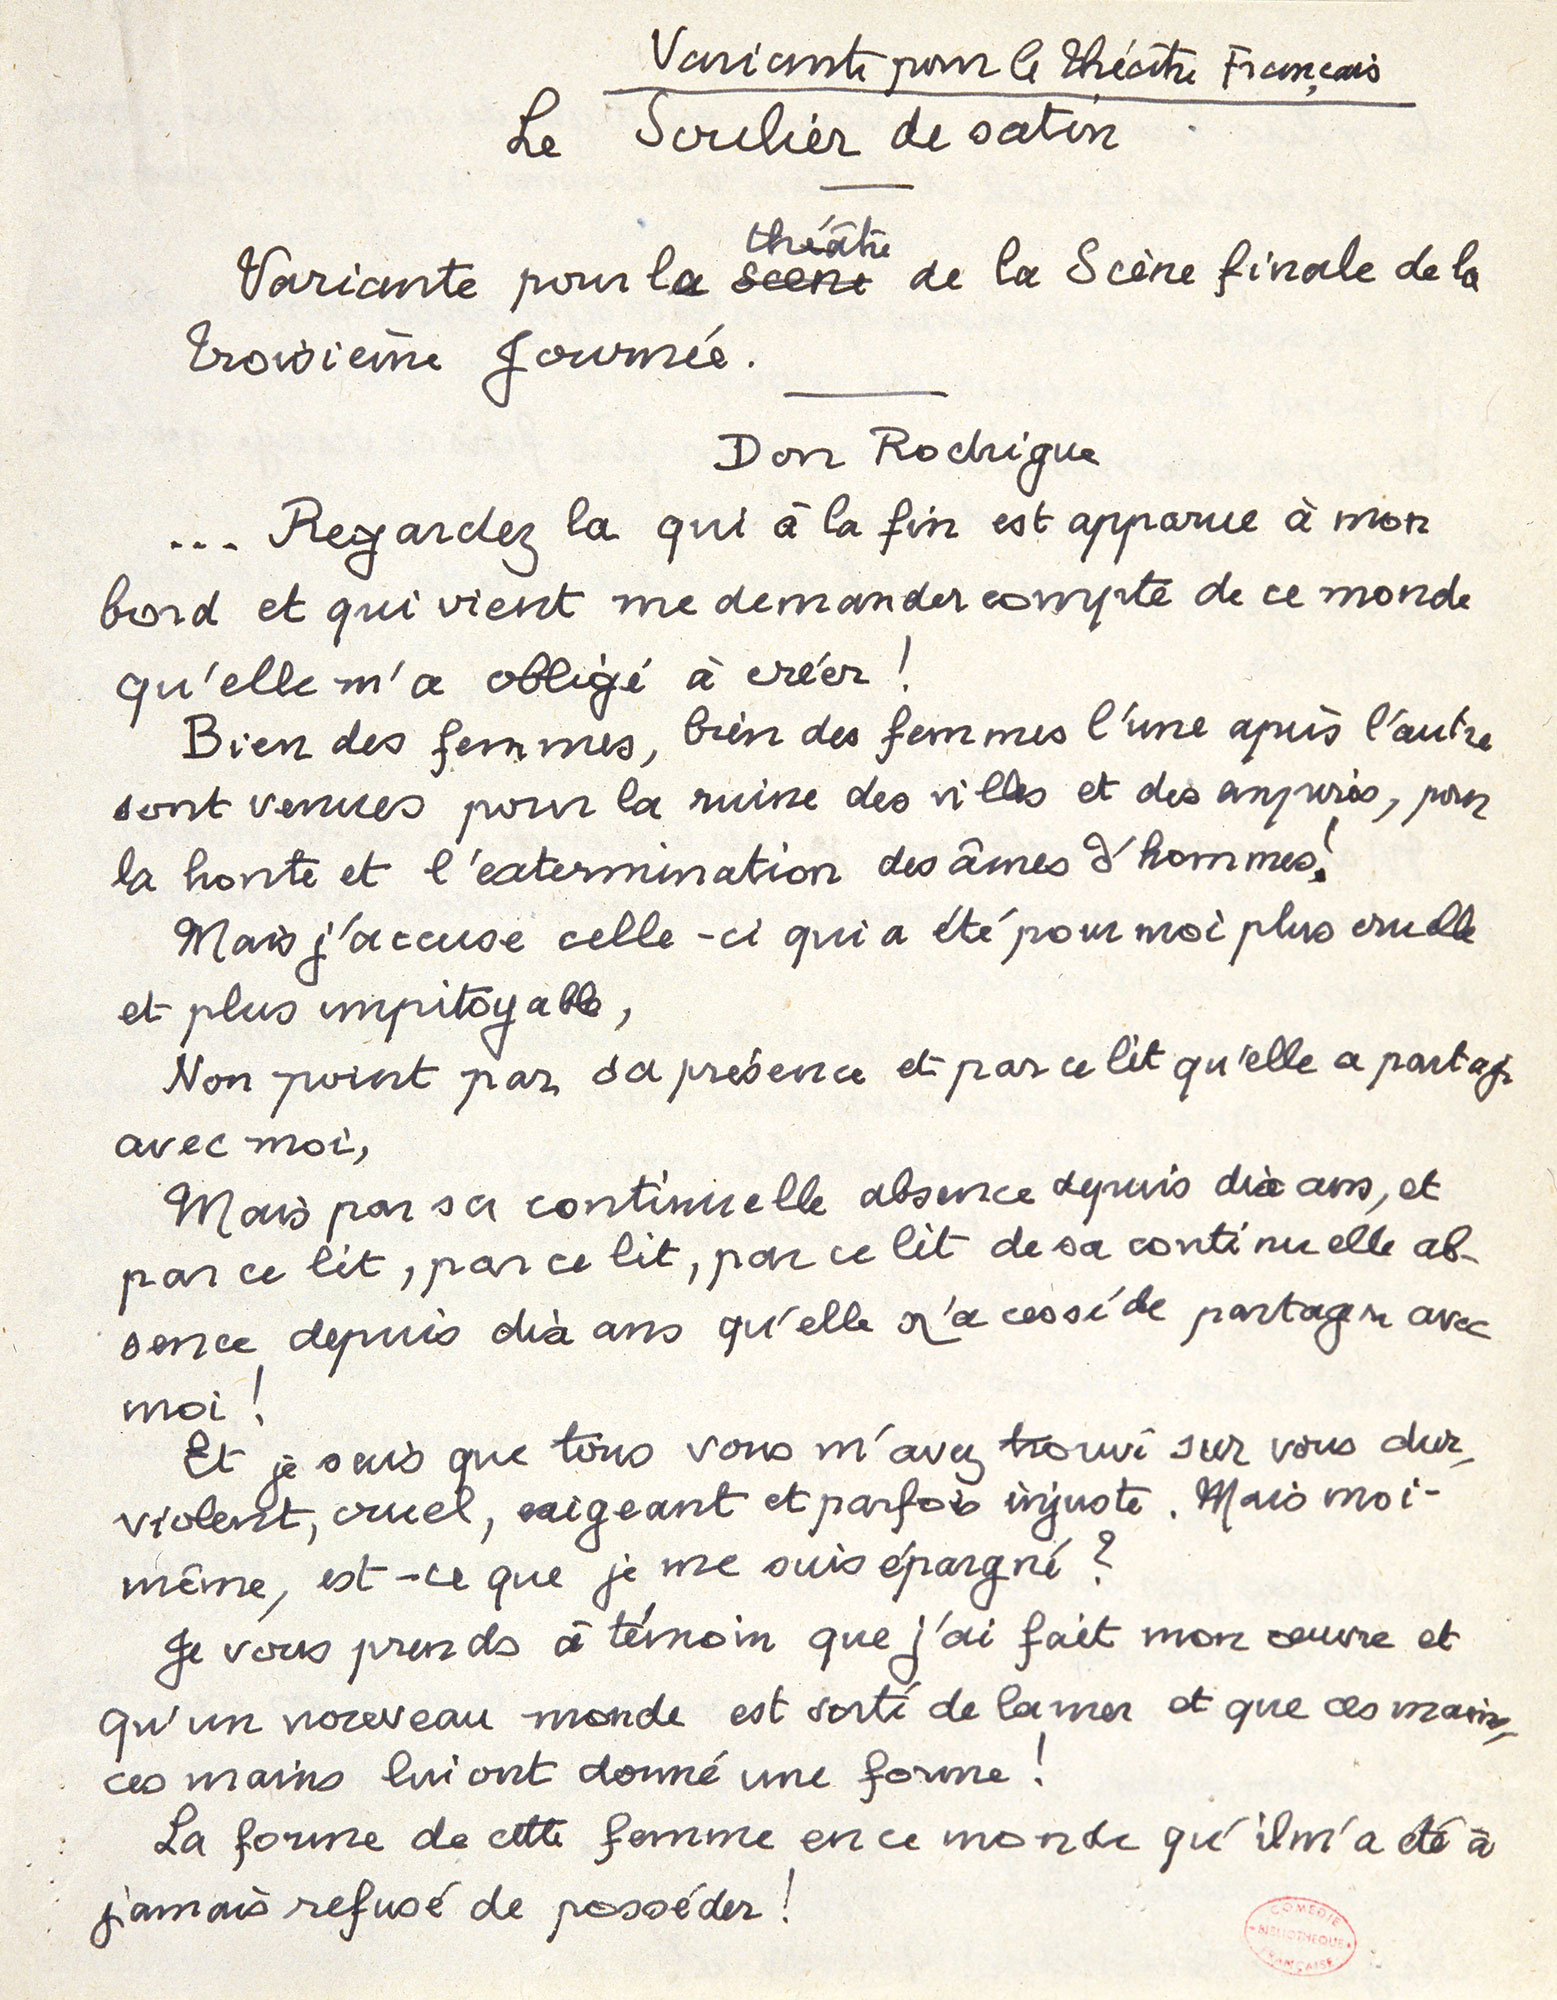 Variante pour le théâtre Français
Le Soulier de satin
Variante pour le scène théâtre de la Scène finale de la
troisième Journée.
Don Rodrigue
... Regardez la qui à la fin est apparue à mon
bord et qui vient me demander compte de ce monde
qu'elle m'a obligé à créer !
Bien des femmes, bien des femmes l'une après l'autre
sont venues pour la ruine des villes et des empires, pour
la honte et l'extermination des âmes d'hommes !
Mais j'accuse celle-ci qui a été pour moi plus cruelle
et plus impitoyable,
Non point par sa présence et par ce lit qu'elle a partagé
avec moi,
Mais par sa continuelle absence depuis dix ans, et
par ce lit, par ce lit, par ce lit de sa continuelle ab-
sence depuis dix ans qu'elle n'a cessé de partager avec
moi !
Et je sais que tous vous m'avez trouvé sur vous dur,
violent, cruel, exigeant et parfois injuste. Mais moi-
même, est-ce que je me suis épargné ?
Je vous prends à témoin que j'ai fait mon œuvre et
qu'un nouveau monde est sorti de la mer et que ces mains,
ces mains lui ont donné une forme !
La forme de cette femme en ce monde qu'il m'a été à
jamais refusé de posséder !
COMÉDIE
BIBLIOTHÈQUE
FRANÇAISE